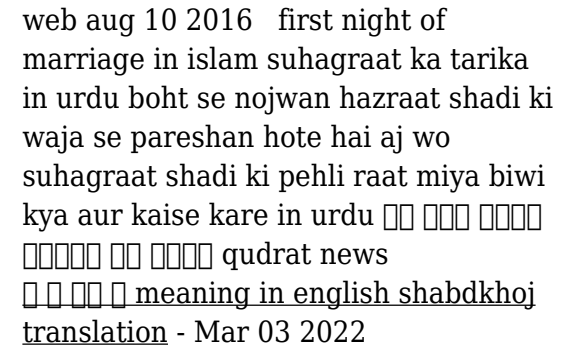 web aug 10 2016 first night of
marriage in islam suhagraat ka tarika
in urdu boht se nojwan hazraat shadi ki
waja se pareshan hote hai aj wo
suhagraat shadi ki pehli raat miya biwi
kya aur kaise kare in urdu
qudrat news
meaning in english shabdkhoj
translation - Mar 03 2022